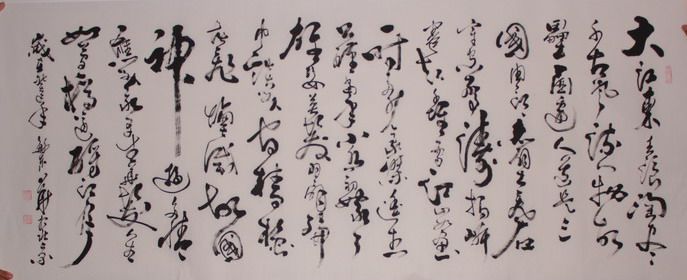 大江東去浪淘盡
千古風流人物故
壘西邊人道是三
國周郎赤壁亂石
穿空驚濤拍岸
卷起千堆雪江山如畫
一時多少豪傑遙想
公瑾當年小喬初嫁了
雄姿英發羽扇綸
巾談笑間檣櫓
灰飛煙滅故國
神遊多情
應笑我早生華髮人生
如夢一樽還酹江月